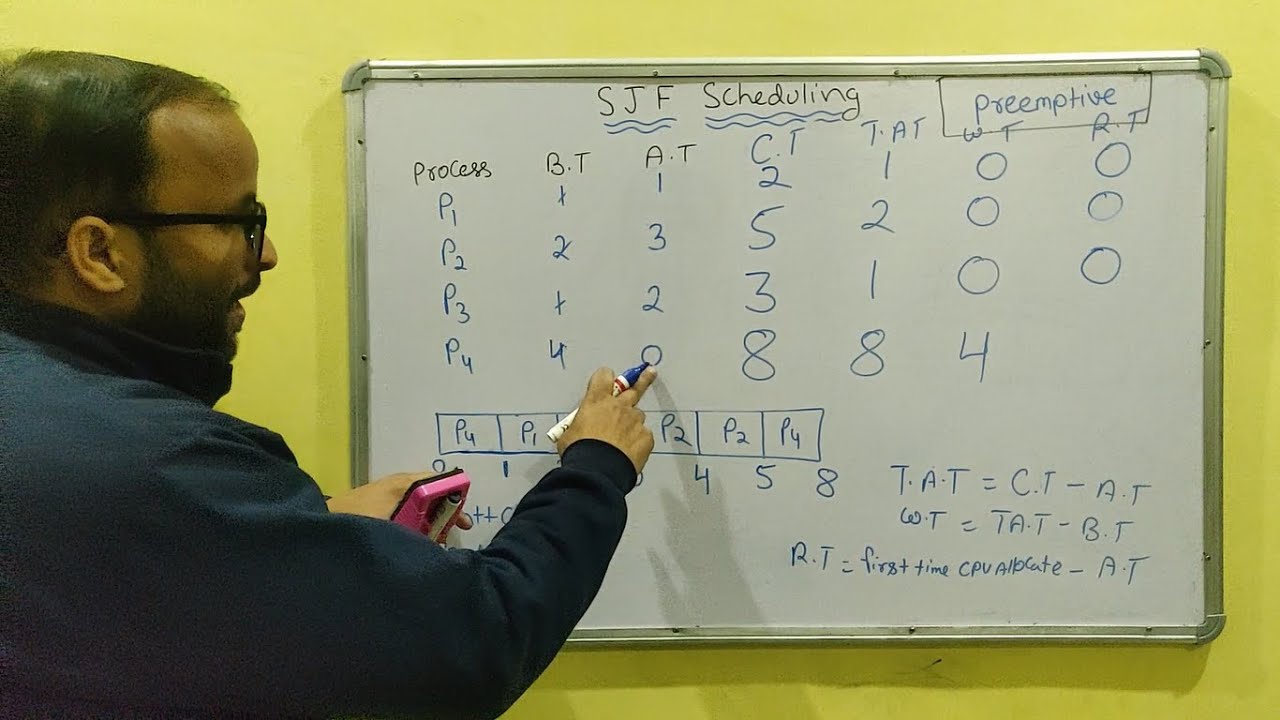 SJF Scheduling
Preemptive
Process B.T A.T C.T T.AT W.T R.T
P1 1 1 2 1 0 0
P2 2 3 5 2 0 0
P3 1 2 3 1 0 0
P4 4 0 8 8 4
P4 P1 P2 P2 P4
0 1 4 5 8
T.A.T = C.T - A.T
W.T = TA.T - B.T
R.T = first time CPU Allocate - A.T